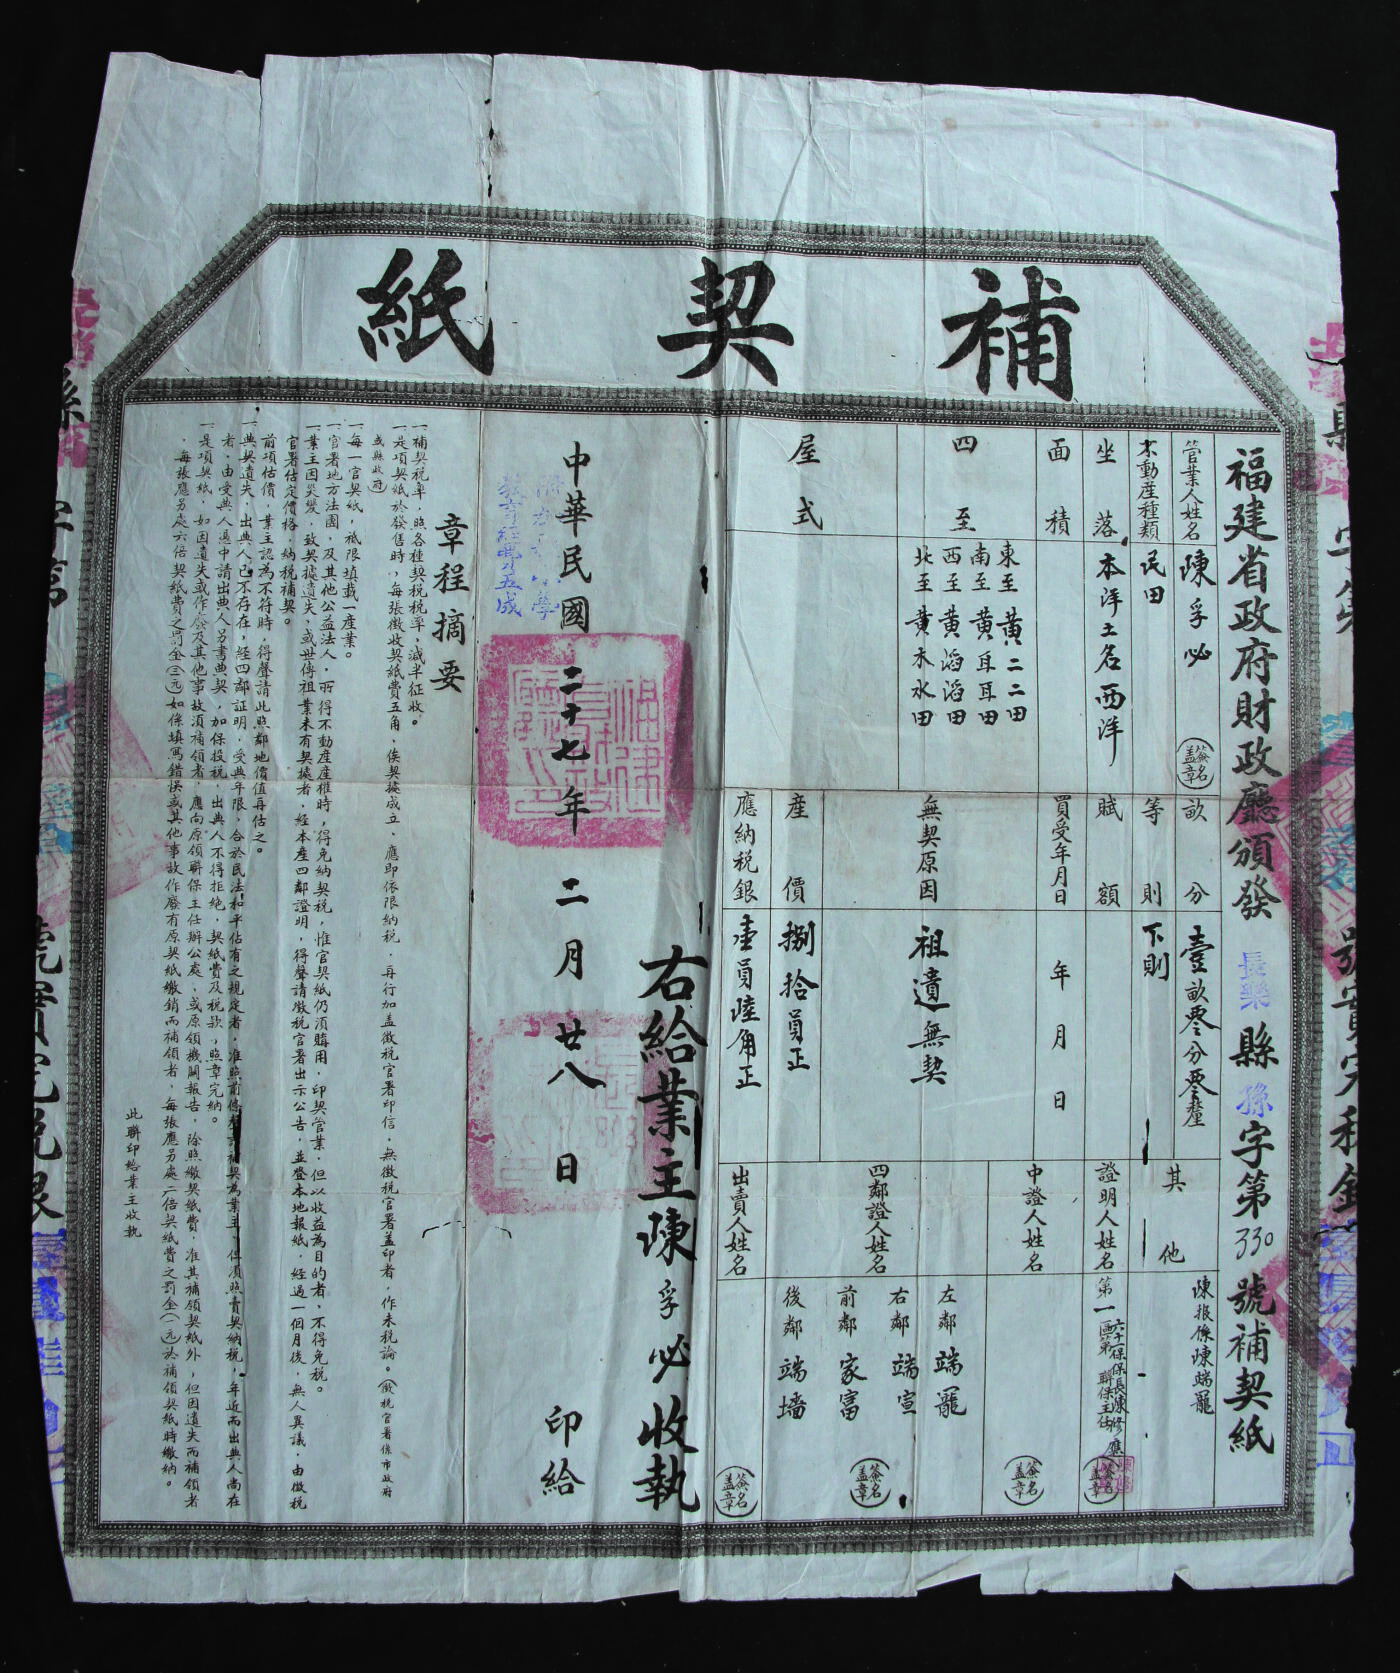 補契紙
福建省政府財政廳頒發長樂縣孫字第330號補契紙
管業人姓名 陳孚必 簽名蓋章
畝分 壹畝零分零釐
其他 陳報係陳端罷
不動產種類 民田
等則 下則
坐落 本洋土名西洋
賦額
證明人姓名 第一區第 聯保主任 六十一保保長陳修應 簽名蓋章
面積
買受年月日 年月日
中證人姓名 簽名蓋章
四至
東至黃二二田
南至黃耳耳田
西至黃滔滔田
北至黃木水田
無契原因 祖遺無契
四鄰證人姓名
左鄰端罷
右鄰端宣
前鄰家富
後鄰端墻
簽名蓋章
屋式
產價 捌拾員正
應納稅銀 壹員陸角正
出賣人姓名 簽名蓋章
右給業主陳孚必收執
中華民國二十七年二月廿八日 印給
教育經費五成
章程摘要
一補契稅率，照各種契稅稅率，減半征收。
一是項契紙於發售時，每張徵收契紙費五角，俟契據成立，應即依限納稅，再行加蓋徵稅官署印信，無徵稅官署蓋印者，作未稅論。（徵稅官署係市政府
或縣政府）
一每一官契紙，祇限填載一產業。
一官署地方法團，及其他公益法人，所得不動產產權時，得免納契稅，惟官契紙仍須購用，印契管業，但以收益為目的者，不得免稅。
一業主因災變，致契據遺失，或世傳祖業未有契據者，經本產四鄰證明，得聲請徵稅官署出示公告，並登本地報紙，經過一個月後，無人異議，由徵稅
官署估定價格，納稅補契。
前項估價，業主認為不符時，得聲請此照鄰地價值再估之。
一典契遺失，出典人已不存在，經四鄰証明，受典年限，合於民法和平佔有之規定者，准照前條補契為業主，但須照賣契納稅，年近而出典人尚在
者，由受典人憑中請出典人另書典契，加保投稅，出典人不得拒絕，契紙費及稅款，照章完納。
一是項契紙，如因遺失或作廢及其他事故須補領者，應向原領聯保主任辦公處，或原領機關報告，除照繳契紙費，准其補領契紙外，但因遺失而補領者
，每張應另處六倍契紙費之罰金（三元）如係填寫錯悞或其他事故作廢有原契紙繳銷而補領者，每張應另處二倍契紙費之罰金（一元）於補領契紙時繳納。
此聯印給業主收執